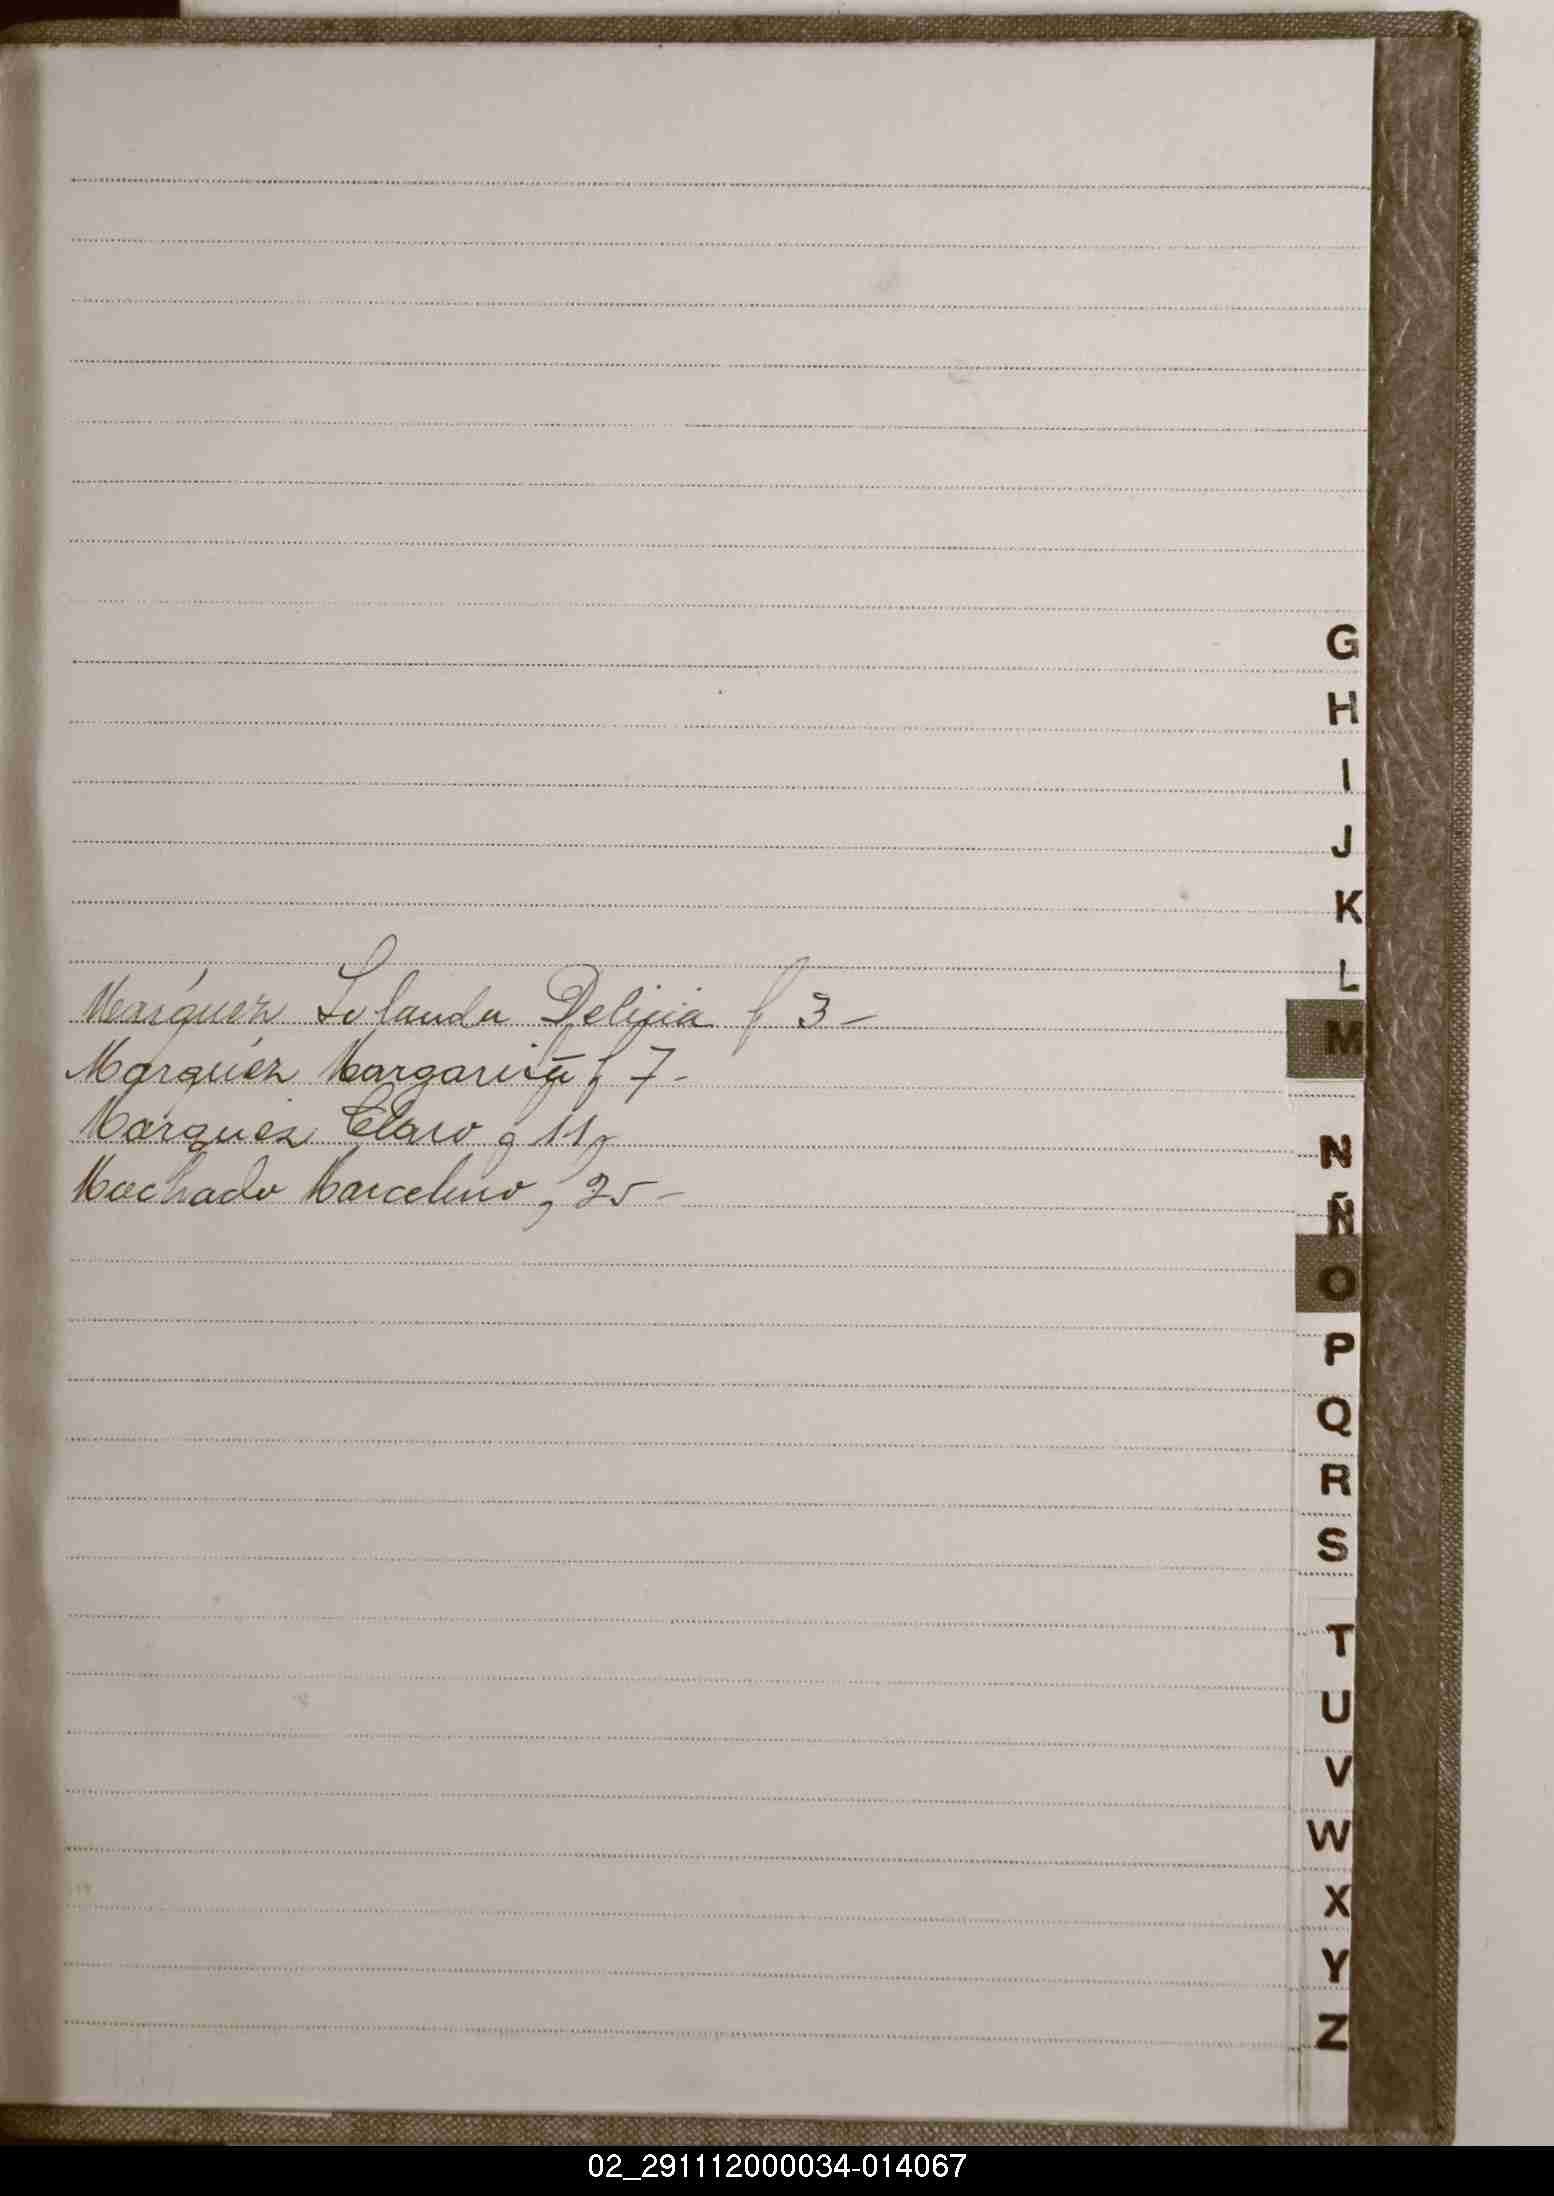 Marquez Iolanda Delicia f 3 -
Marquéz Margarita f 7 -
Marquez Claro f 11
Machado Marcelino f 25 -
G
H
I
J
K
L
M
N
Ñ
O
P
Q
R
S
T
U
V
W
X
Y
Z
02_291112000034-014067